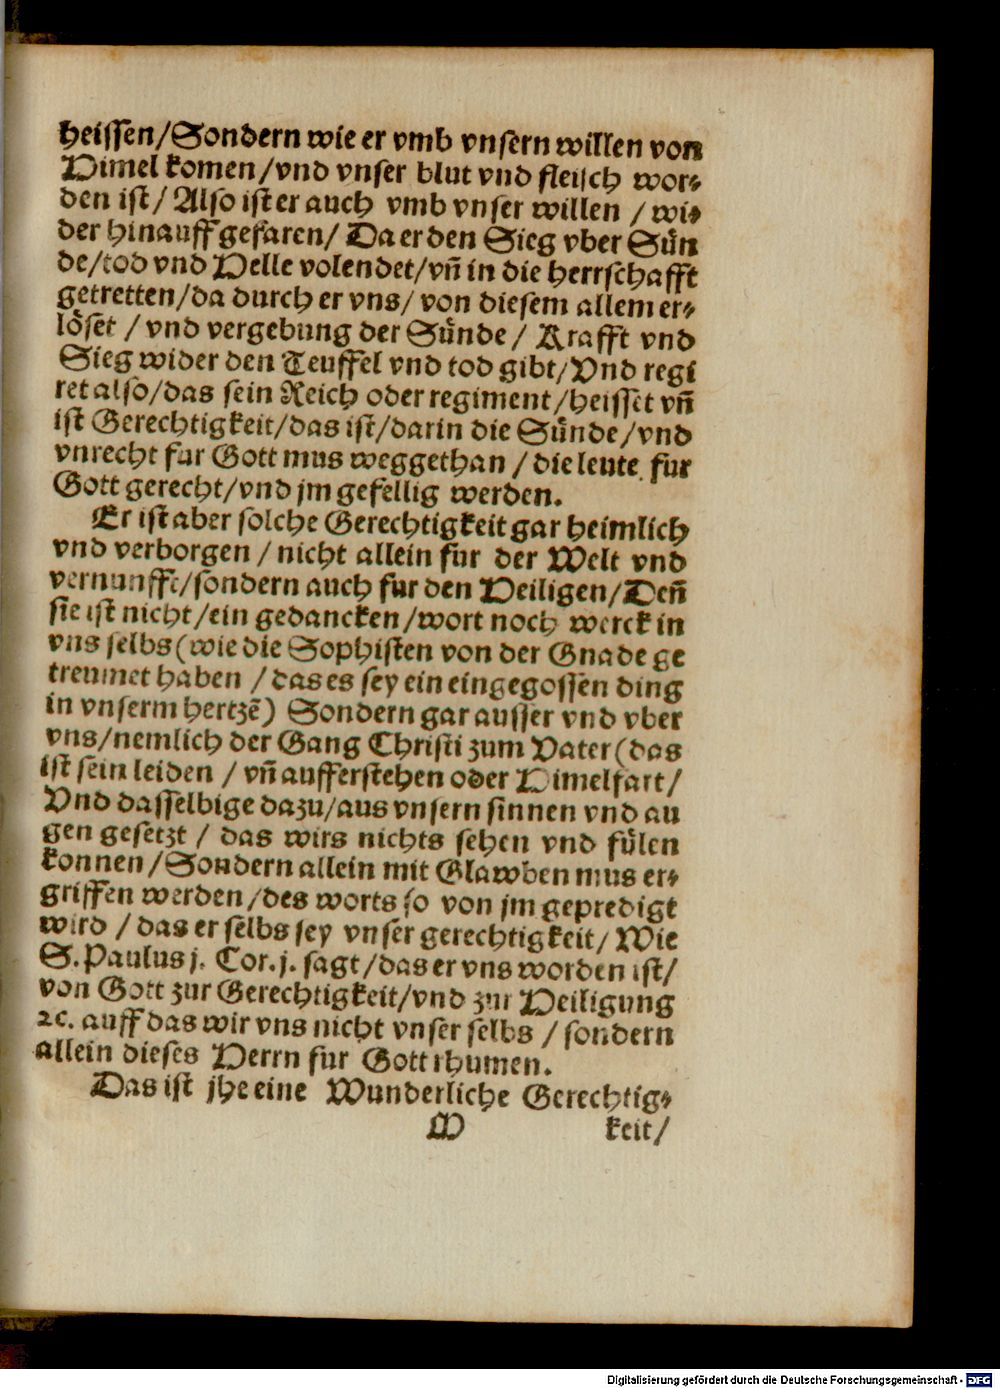 heissen/Sondern wie er vmb vnsern willen von
Himel komen/vnd vnser blut vnd fleisch wor⸗
den ist/ Also ist er auch vmb vnser willen / wi⸗
der hinauff gefaren/ Da er den Sieg vber Sün
de/tod vnd Helle volendet/vñ in die herrschafft
getretten/da durch er vns/ von diesem allem er⸗
löset / vnd vergebung der Sünde/ Krafft vnd
Sieg wider den Teuffel vnd tod gibt/Vnd regi
ret also/das sein Reich oder regiment/heisset vñ
ist Gerechtigkeit/das ist/darin die Sünde/vnd
vnrecht fur Gott mus weggethan / die leute fur
Gott gerecht/vnd jm gefellig werden.
Er ist aber solche Gerechtigkeit gar heimlich
vnd verborgen / nicht allein fur der Welt vnd
vernunfft/sondern auch fur den Heiligen/Deñ
sie ist nicht/ein gedancken/wort noch werck in
vns selbs(wie die Sophisten von der Gnade ge
treumet haben / das es sey ein eingegossen ding
in vnserm hertzẽ) Sondern gar ausser vnd vber
vns/nemlich der Gang Christi zum Vater(das
ist sein leiden / vñ aufferstehen oder Himelfart/
Vnd dasselbige dazu/aus vnsern sinnen vnd au
gen gesetzt / das wirs nichts sehen vnd fülen
konnen/Sondern allein mit Glawben mus er⸗
griffen werden/des worts so von jm gepredigt
wird / das er selbs sey vnser gerechtigkeit/ Wie
S. Paulus j. Cor. j. sagt/das er vns worden ist/
von Gott zur Gerechtigkeit/vnd zur Heiligung
ꝛc. auff das wir vns nicht vnser selbs / sondern
allein dieses Herrn fur Gott rhumen.
Das ist jhe eine Wunderliche Gerechtig⸗
M keit/
Digitalisierung gefördert durch die Deutsche Forschungsgemeinschaft - DFG